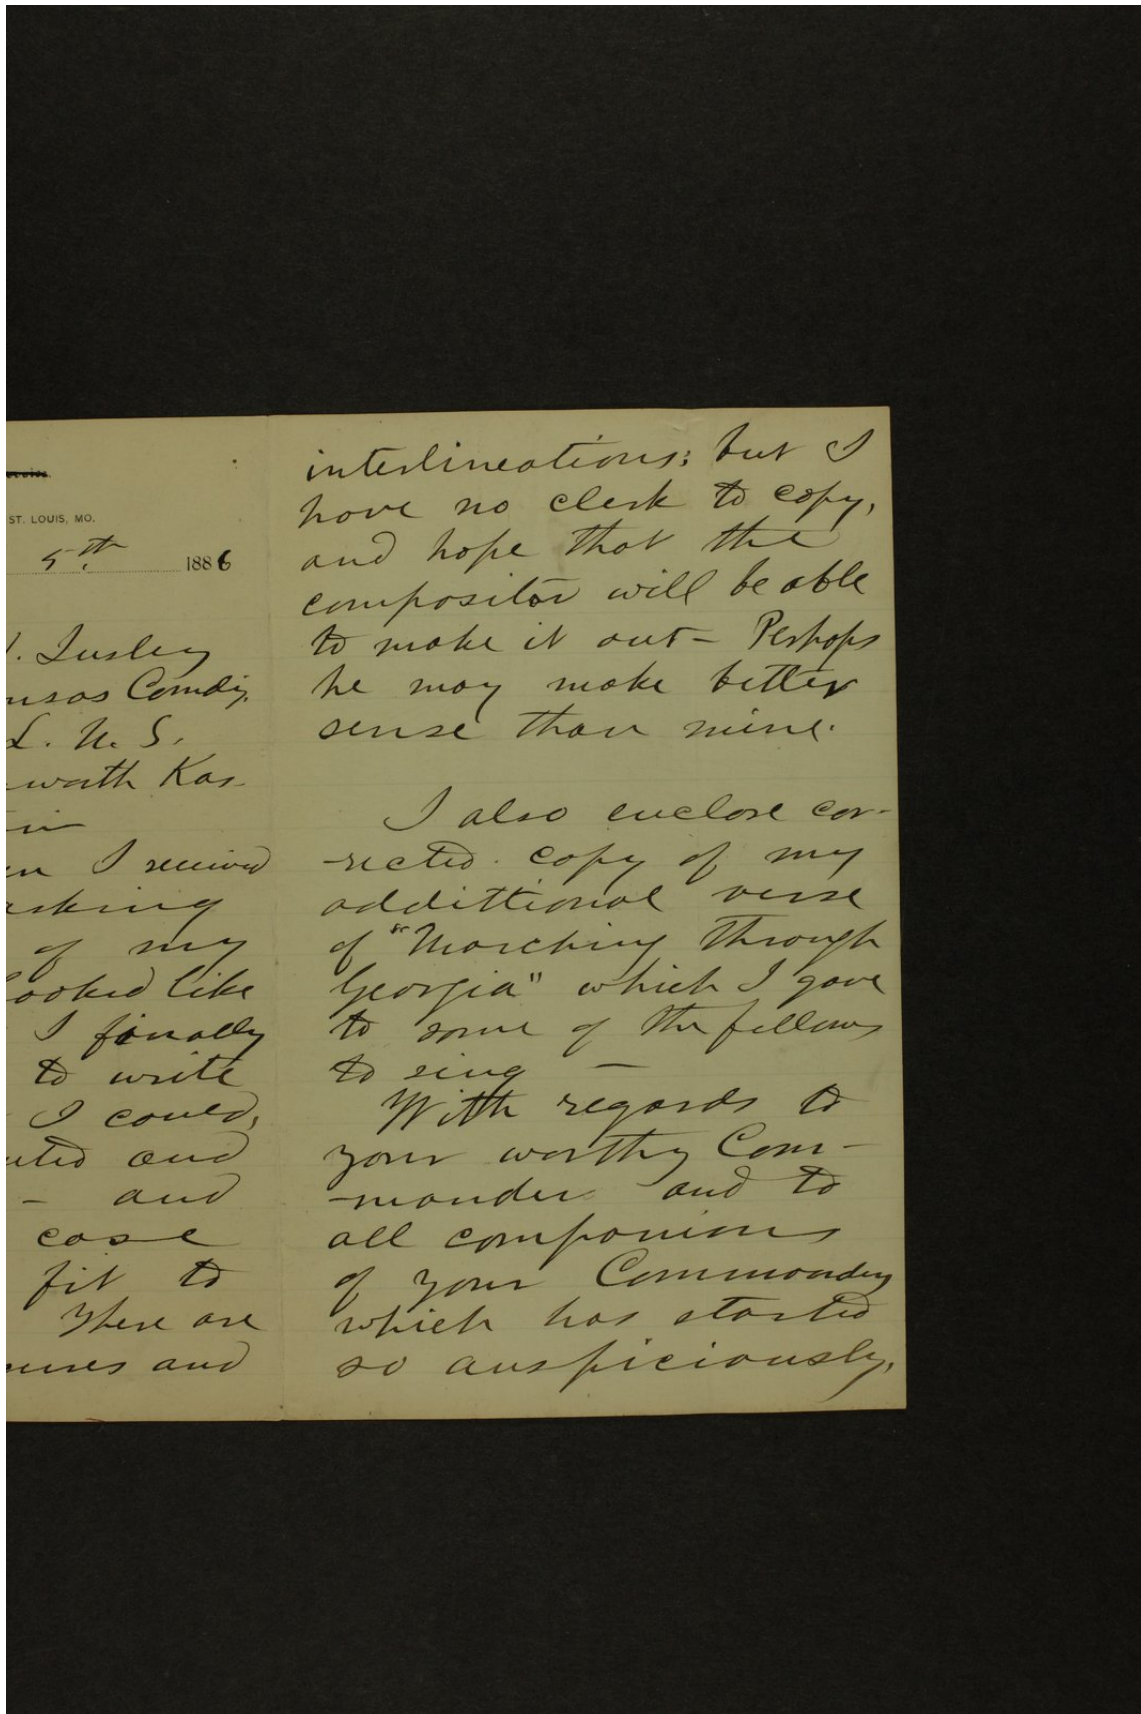 ST. LOUIS, MO.
5th 1886
Insley
Comdy.
L. U. S.
worth Kas-
I received
asking
of my
looked like
I finally
to write
I could,
and
- and
case
fit to
There are
and
interlineations; but I
have no clerk to copy,
and hope that the
compositor will be able
to make it out - Perhaps
he may make better
sense than mine.
I also enclose cor-
-rected copy of my
addittional verse
of "Marching through
Georgia" which I gave
to some of the fellows
to sing -
With regards to
your worthy Com-
-mander and to
all companions
of your Commandery
which has started
so auspiciously,